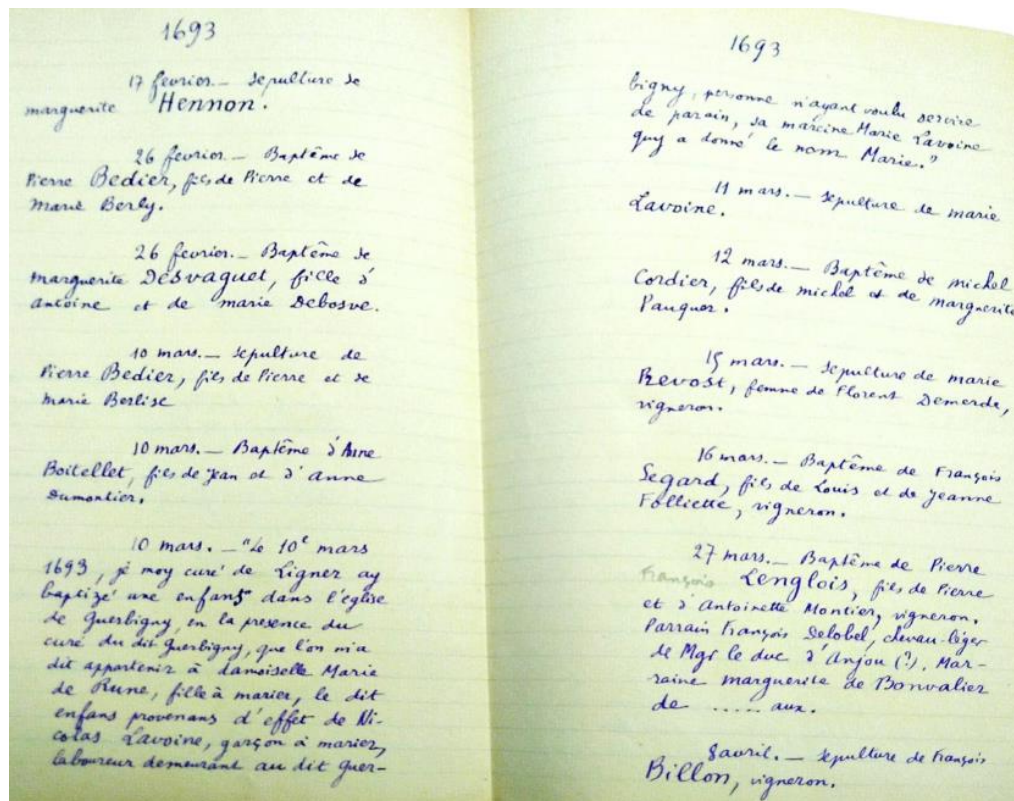 1693
17 fevrier. — Sepulture de
marguerite Hennon.
26 fevrier. — Baptême de
Pierre Bedier, fils de Pierre et de
Marie Berly.
26 fevrier. — Baptême de
marguerite Desvaguet, fille d'
antoine et de marie Debosve.
10 mars. — Sepulture de
Pierre Bedier, fils de Pierre et de
Marie Berlise
10 mars. — Baptême d'Anne
Boitellet, fils de Jean et d'Anne
Dumontier.
10 mars. — "Le 10e mars
1693, je moy curé de Ligner ay
baptizé une enfans dans l'église
de Guerbigny, en la presence du
curé du dit Guerbigny, que l'on m'a
dit appartenir à damoiselle Marie
de Rune, fille à marier, le dit
enfans provenans d'effet de Ni-
colas Lavoine, garçon à marier,
laboureur demeurant au dit Guer-
1693
bigny, personne n'ayant voulu servire
de parain, sa marine Marie Lavoine
quy a donné le nom Marie."
11 mars. — Sepulture de marie
Lavoine.
12 mars. — Baptême de michel
Cordier, fils de michel et de marguerite
Pauquer.
15 mars. — Sepulture de marie
Revost, femme de Florent Demerde,
vigneron.
16 mars. — Baptême de François
Segard, fils de Louis et de Jeanne
Folliette, vigneron.
27 mars. — Baptême de Pierre
François Lenglois, fils de Pierre
et d'Antoinette Montier, vigneron.
Parrain François Delobel, chevau-léger
de Mgr le duc d'Anjou (?). Mar-
raine marguerite de Bonvalier
de ..... aux.
8 avril. — Sepulture de François
Billon, vigneron.